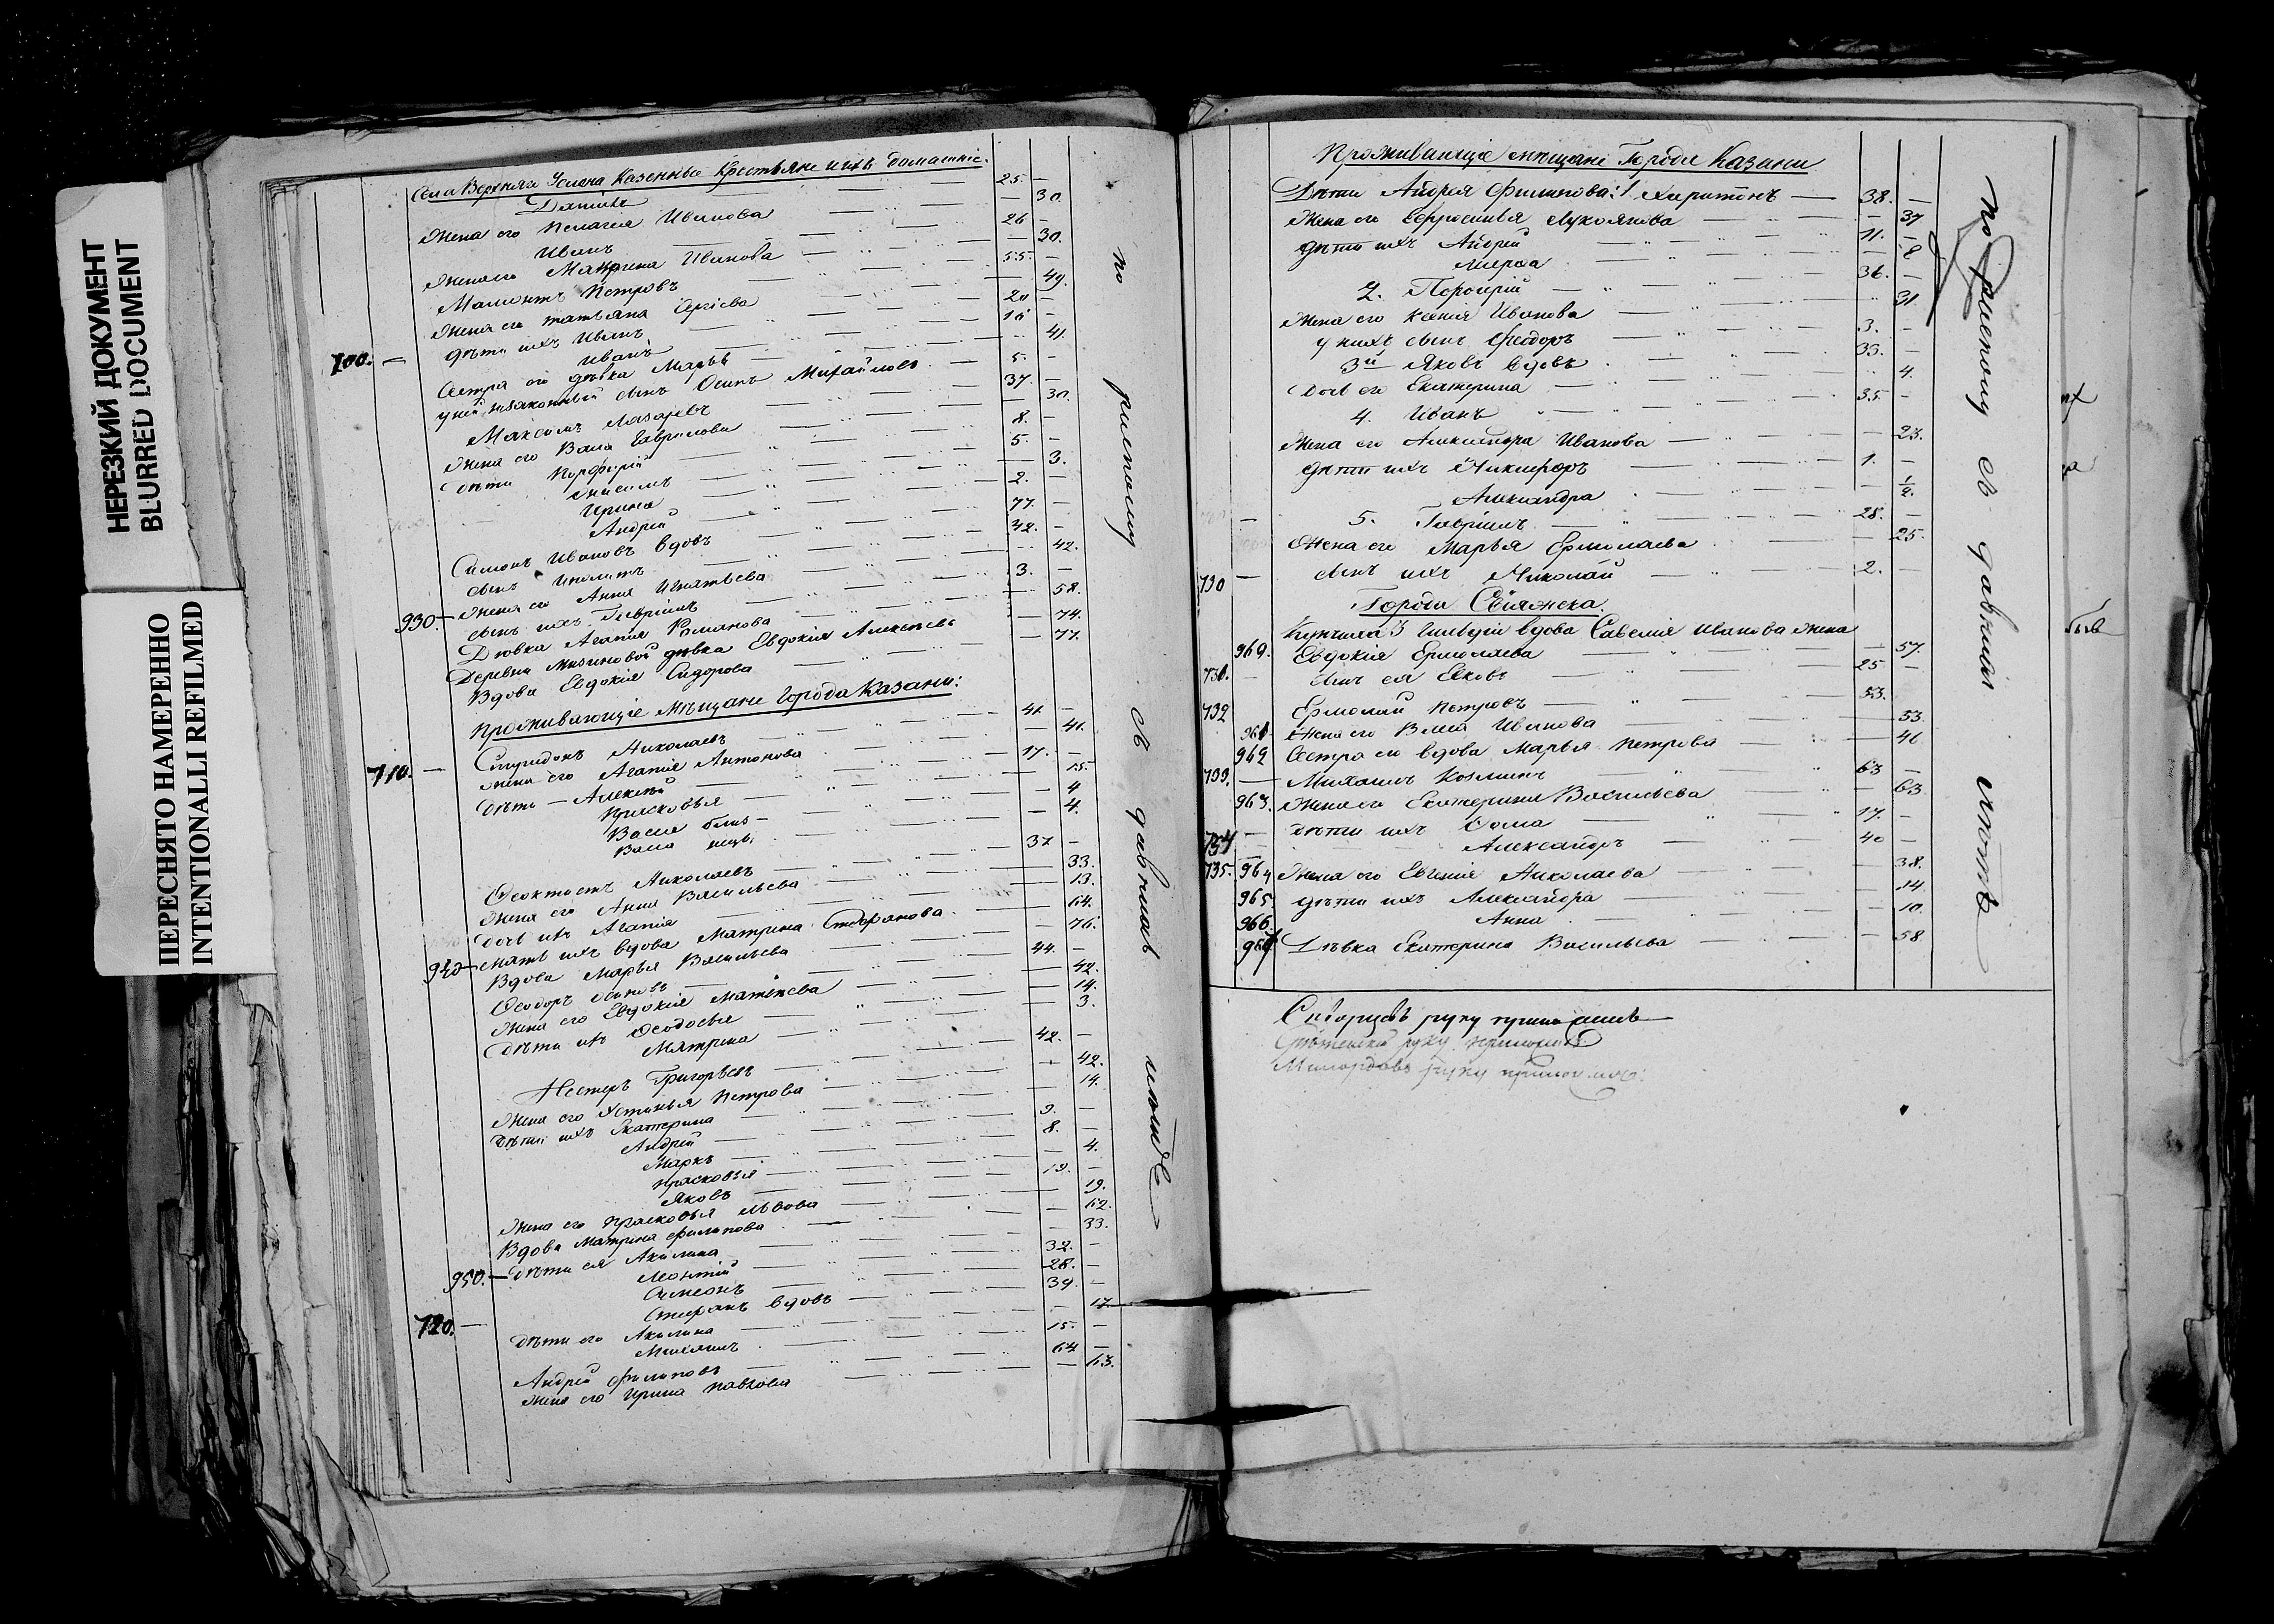 НЕРЕЗКИЙ ДОКУМЕНТ
BLURRED DOCUMENT
ПЕРЕСНЯТО НАМЕРЕННО
INTENTIONALLI REFILMED
Села Верхняго Услона Казенные Крестьяне и ихъ домашніе.
Данилъ 25. —
Жена его Пелагея Иванова — 30.
Иванъ 26 —
Жена его Матрена Иванова — 30.
Мамонтъ Петровъ 55. —
Жена его Татьяна — 49.
дѣти ихъ Иванъ 20 —
700. — Иванъ 16 —
Сестра его дѣвка Марья 41.
у ней незаконный сынъ Осипъ Михайловъ 5. —
Максимъ Лазаревъ 37. —
Жена его Васса Гаврилова — 30.
дѣти Порфирій 8. —
Анисимъ 5. —
Ирина — 3.
Андрей 2. —
Симонъ Ивановъ вдовъ 77. —
сынъ Иполитъ 42. —
930. — Жена его Анна Игнатьева — 42.
сынъ ихъ Гавріилъ 3. —
Дѣвка Агапія Романова — 58.
Деревни дѣвка Евдокія Алексѣева — 74.
Вдова Евдокія Сидорова — 77.
Проживающіе Мѣщане Города Казани:
710. — Спиридонъ Николаевъ 41. —
жена его Агапія Антонова — 41.
дѣти — Алексѣй 17. —
Прасковья — 15.
Васса близ- — 4
Васса нецы. — 4.
Феоктистъ Николаевъ 37 —
Жена его Анна Васильева — 33.
дочь ихъ Агапія — 13.
940 — мать ихъ вдова Матрена Стефанова — 64.
Вдова Марья Васильева — 76.
Феодоръ 44. —
Жена его Евдокія Матвѣева — 42.
дѣти ихъ Феодосья — 14.
Матрена — 3.
Нестеръ Григорьевъ 42. —
Жена его Устинья Петрова 42.
дѣти ихъ Екатерина 14.
Андрей 9. —
Маркъ 8. —
Прасковья — 4.
Яковъ 19. —
Жена его Прасковья Львова — 19.
Вдова Матрена Филипова — 62.
950. — дѣти ея Акилина — 33.
Леонтій 32. —
Симеонъ 28. —
720. — Стефанъ вдовъ 39. —
дѣти его Акилина — 17.
Михаилъ 15. —
Андрей Филиповъ 64 —
Жена его Ирина Павлова — 63.
по расписному съ давнихъ
Проживающіе мѣщане Города Казани
Дѣти Андрея Филипова: 1. Харитонъ — 38. —
Жена его Ефросинья Лукоянова — 37
дѣти ихъ Андрей 11. —
Марфа — 8
2. 36. —
Жена его Ксенія Иванова 31
у нихъ сынъ Феодоръ 3. —
3й Яковъ вдовъ 33. —
Дочь его Екатерина 4.
4. Иванъ 35. —
Жена его Александра Иванова — 23.
дѣти ихъ Никифоръ 1. —
Александра — ½.
— 5. Гавріилъ 28. —
Жена его Марья Ермолаева — 25.
730 — сынъ ихъ Николай 2. —
Города Свіяжска.
Купчиха 3 Гильдіи вдова Савелія Иванова жена
960. Евдокія Ермолаева — 57.
731. — сынъ ея Яковъ 25 —
732 Ермолай Петровъ 53.
961 Жена его Васса Иванова — 53
962 Сестра его вдова Марья Петрова — 46
733. — Михаилъ Козминъ 63 —
963. Жена его Екатерина Васильева — 63
734 — дѣти ихъ Фома 17. —
735. — Александръ 40 —
964 Жена его Евгенія Николаева — 38.
965. дѣти ихъ Александра — 14
966 Анна — 10.
967 Дѣвка Екатерина Васильева — 58
по расписному съ давнихъ
руку приложилъ
руку приложилъ
руку приложилъ.